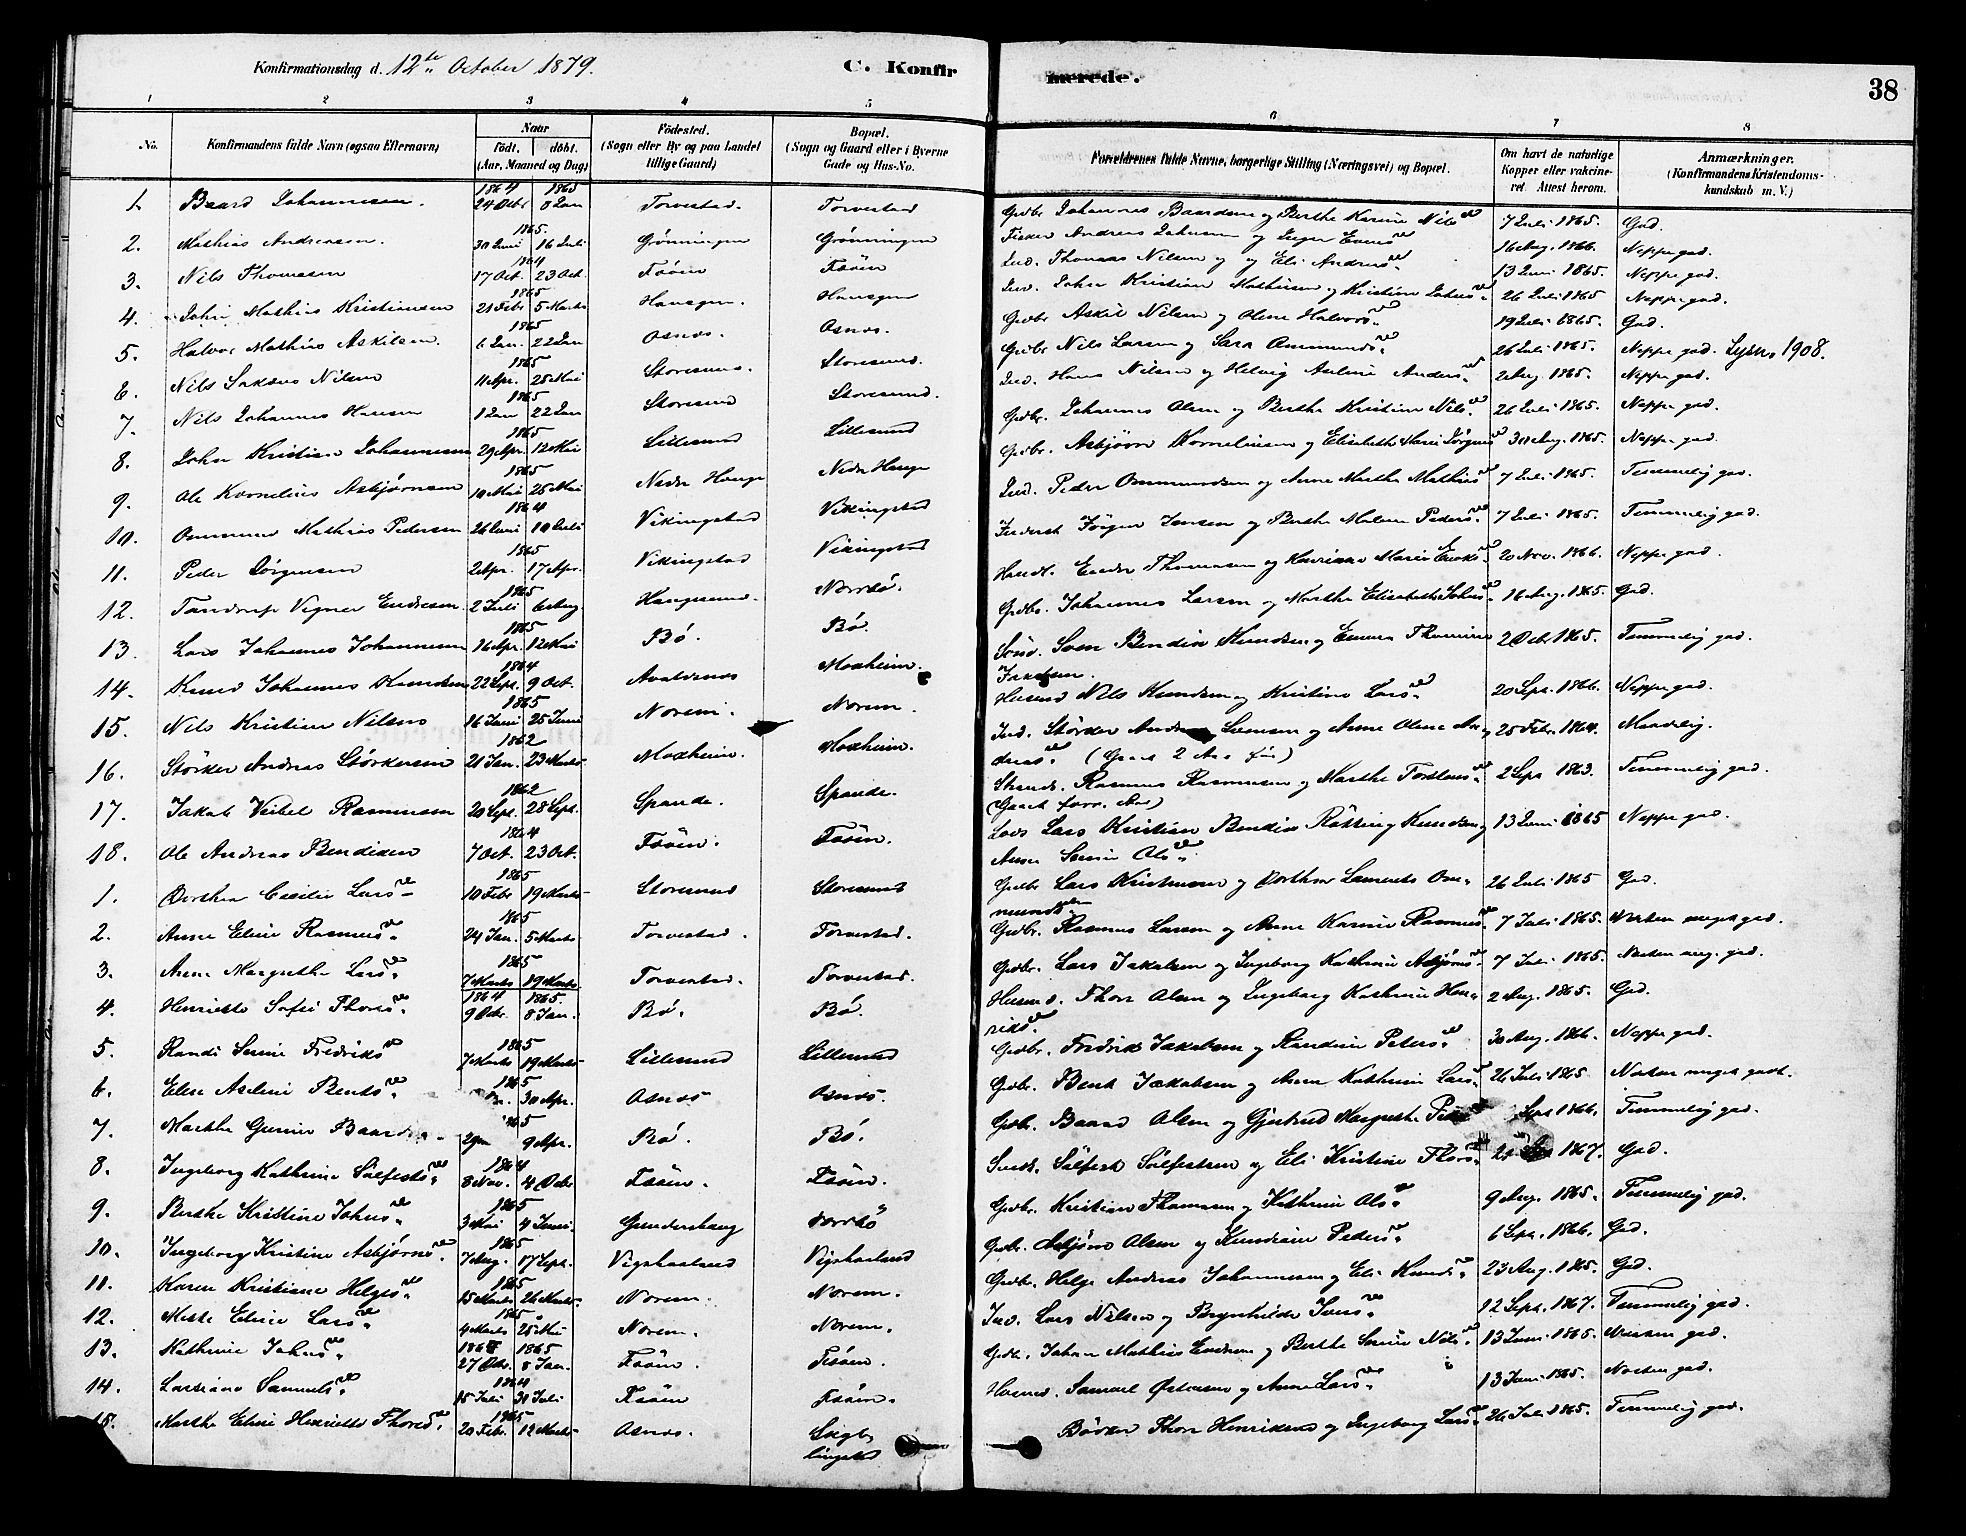 Konfirmationsdag d. 12te October 1879. C. Konfirmerede. 38
1 2 3 4 5 6 7 8
No. Konfirmandens fulde Navn (ogsaa Efternavn) Naar födt. döbt. (Aar, Maaned og Dag) Födested. (Sogn eller By og paa Landet tillige Gaard) Bopæl. (Sogn og Gaard eller i Byerne Gade og Hus-No. Forældrenes fulde Navne, borgerlige Stilling (Næringsvei) og Bopæl. Om havt de naturlige Kopper eller vakcineret. Attest herom. Anmærkninger. (Konfirmandens Kristendomskundskab m. V.)
1. Baard Johannesen. 1864 24 Octbr 1865 8 Jan Torvestad. Torvestad Grdbr Johannes Baardsen og Berthe Karine Nilsd 7 Juli 1865. God.
2. Mathias Andreasen. 1865. 30 Juni 16 Juli Grønningen Grønningen Fisker Andreas Johnsen og Inger Eversd 16 Aug. 1866. Neppe god.
3. Nils Thomasen 1864 17 Oct. 23 Oct. Fæöen Fæöen Ind. Thomas Nilsen og Eli Andersd. 13 Juni 1865. Neppe god.
4. John Mathias Kristiansen 1865 21 Febr 5 Marts Haugen. Haugen Ind. John Kristian Mathisen og Kristine Johnsd. 26 Juli 1865 Neppe god.
5. Halvor Mathias Askilsen. 1865 6 Jan. 22 Jan Osnes. Osnes. Grdbr Askil Nilsen og Oline Halvorsd. 19 Juli 1865. God.
6. Nils Nilsen 1865 11 Apr. 25 Mai Storesund. Storesund. Grdbr Nils Larsen og Sara Ommundsd. 26 Juli 1865. Neppe god. Lysn. 1908.
7. Nils Johannes Hansen 1865 1 Jan 22 Jan Storesund Storesund. Ind. Hans Nilsen og Helvig Andersd. 2 Aug. 1865. Neppe god.
8. John Kristian Johannesen 1865 29 Apr. 12 Mai Lillesund Lillesund Grdbr. Johannes Olsen og Berthe Kristine Nilsd. 26 Juli 1865. Neppe god.
9. Ole Kornelius Asbjørnsen 1865 10 Mai 25 Mai Nedre Hauge Nedre Hauge Grdbr. Asbjørn Kornelinsen og Elisabeth Marie Jørgensd 30 Aug. 1865. Neppe god.
10. Ommund Mathias Pedersen 1864 26 Juni 10 Juli Vikingstad Vikingstad Ind. Peder Ommundsen og Anne Marthe Mathiasd 7 Juli 1865. Temmelig god.
11. Peder Jørgensen 1865 2 Apr. 17 Apr. Vikingstad Vikingstad Jørgen Jensen og Berthe Malene Pedersd. 7 Juli 1865. Temmelig god.
12. Tandrup Vigner Endresen 1865 2 Juli 6 Aug Haugesund. Norrbö. Handl. Endre Thomasen og Marie Eriksd 20 Nov. 1866. Neppe god.
13. Lars Johannes Johannesen 1865 16 Apr. 12 Mai Bö. Bö. Grdbr. Johannes Larsen og Marthe Elisabeth Johnsd. 16 Aug. 1865. God.
14. Knud Johannes Knudsen 1864 22 Sept. 9 Oct. Avaldsnes Moxheim. Sven Bendix Knudsen og Emma Thomine 2 Octbr. 1865. Temmelig god.
15. Nils Kristian Nilsen 1865 16 Juni 25 Juni Norem. Norem. Husmd Nils Knudsen og Kristine Larsd. 20 Sept. 1866. Neppe god.
16. Störker Andreas Störkersen 1862 21 Jan. 23 Marts Moxheim. Moxheim. Ind. Störker og Anne Oline Andreasd. (Gaaet 2 Aar för) 25 Febr. 1864. Maadelig.
17. Jakob Veibel Rasmussen 1862 20 Sept. 28 Sept. Spande. Spande. Rasmus Rasmussen og Marthe Torstensd. (Gaaet forr. Aar) 2 Sept 1863. Temmelig god.
18. Ole Andreas Bendixen 1864 7 Oct. 23 Oct. Fæöen. Fæöen. Lods Lars Kristian Bendix Knudsen og Anne Serine Olsd. 13 Juni 1865 Neppe god.
1. Dorthea Cecilie Larsd 1865 10 Febr 19 Marts Storesund Storesund Grdbr Lars Kristensen og Dorthea Ommundsd. 26 Juli 1865 God.
2. Anne Eline Rasmusd. 1865 24 Jan. 5 Marts Torvestad. Torvestad. Grdbr. Rasmus Larsen og Anne Karine Rasmusd. 7 Juli 1865. Næsten meget god.
3. Anne Margrethe Larsd. 1865 7 Marts 19 Marts Torvestad. Torvestad. Grdbr. Lars Jakobsen og Ingeborg Kathrine Asbjørnsd 7 Juli 1865. Næsten meg. god.
4. Henriette Sofie Thorsd. 1864 9 Octbr. 1865. 8 Jan. Bö. Bö. Husmd. Thor Olsen og Ingeborg Kathrine Henriksd. 2 Aug. 1865. God.
5. Randi Serine Fredriksd 1865 7 Marts 19 Marts Lillesund Lillesund Grdbr. Fredrik Jakobsen og Randine Petersd. 30 Aug. 1866. Neppe god.
6. Eline Aseline Bentsd. 1865 30 Apr. Osnes Osnes. Grdbr. Bent Jakobsen og Anne Kathrine Larsd. 26 Juli 1865 Næsten meget godt.
7. Marthe Gurine Baards 9 Apr. Bö. Bö. Grdbr. Baard Olsen og Gjertrud Margrethe Sept 1866. Temmelig god.
8. Ingeborg Kathrine Sölfestsd. 1864 8 Nov. 4 Octbr Fæöen. Fæöen. Sölfest Sölfestsen og Eli Kristine Thorsd. 1867. God.
9. Berthe Kristine Johnsd. 1865 3 Mai 4 Juni Gunnarshaug Norrbö Grdbr. Kristian Thomasen og Kathrine Olsd. 9 Aug. 1865. Temmelig god.
10. Ingeborg Kristine Asbjørnsd. 1865 7 Aug. 17 Sept. Vigshaaland Vigshaaland Grdbr. Asbjørn Olsen og Pedersd. 6 Sept. 1866. God.
11. Karen Kristiane Helgesd 1865 15 Marts 26 Marts Norem. Norem. Grdbr. Helge Andreas Johannesen og Eli Knudsd. 23 Aug. 1865. God.
12. Mette Eline Larsd. 1865 4 Marts 25 Mai Norem. Norem. Ind. Lars Nilsen og Brynhilde Iversd. 12 Sept. 1867. Temmelig god.
13. Kathrine Johnsd. 1864 27 Octbr. 1865 8 Jan. Fæöen. Fæöen. Grdbr. Johan Mathias Endresen og Berthe Serine Nilsd. 13 Juni 1865. Næsten god.
14. Larsiane Samuelsd. 1864 15 Juli 31 Juli Fæöen Fæöen. Husmd. Samuel Østensen og Anne Larsd. 13 Juni 1865. Næsten god.
15. Marthe Eline Henriette Thorsd. 1865 20 Febr. 12 Marts Osnes. Bødker Thor Henriksen og Ingeborg Larsd. 26 Juli 1865. Temmelig god.